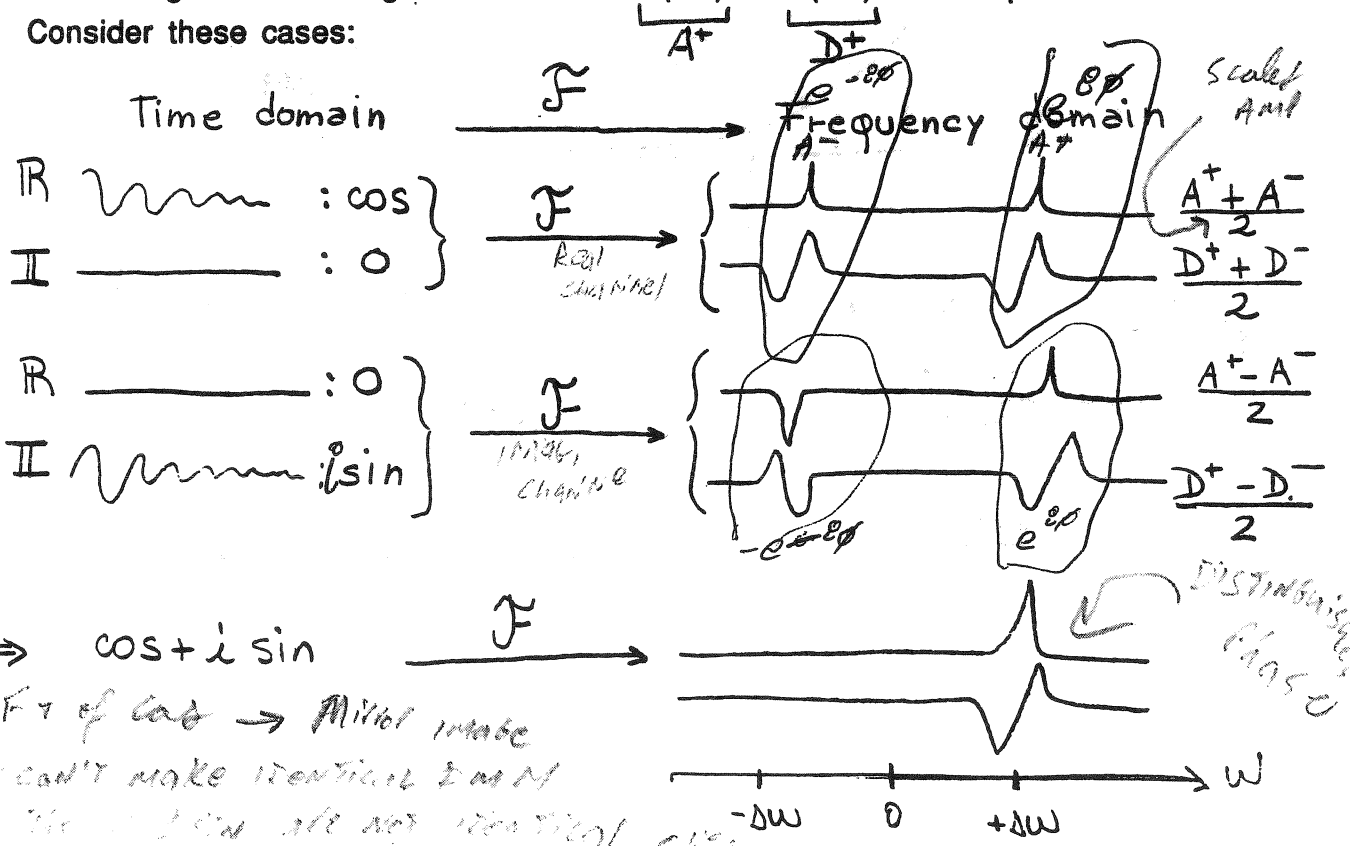 Consider these cases:
A⁺ D⁺
Time domain ℱ Frequency domain
e^{-iφ} e^{iφ}
Scaled
Amp
A⁻ A⁺
ℝ : cos ℱ (A⁺ + A⁻)/2
Real
channel
𝕀 : 0 (D⁺ + D⁻)/2
ℝ : 0 ℱ (A⁺ - A⁻)/2
Imag.
Channe
𝕀 : i sin (D⁺ - D⁻)/2
-e^{-iφ} e^{iφ}
Distinguishes
Phase
⇒ cos + i sin ℱ
FT of Cos → Mirror image
can't make identical
sin are not identical
-Δω 0 +Δω ω